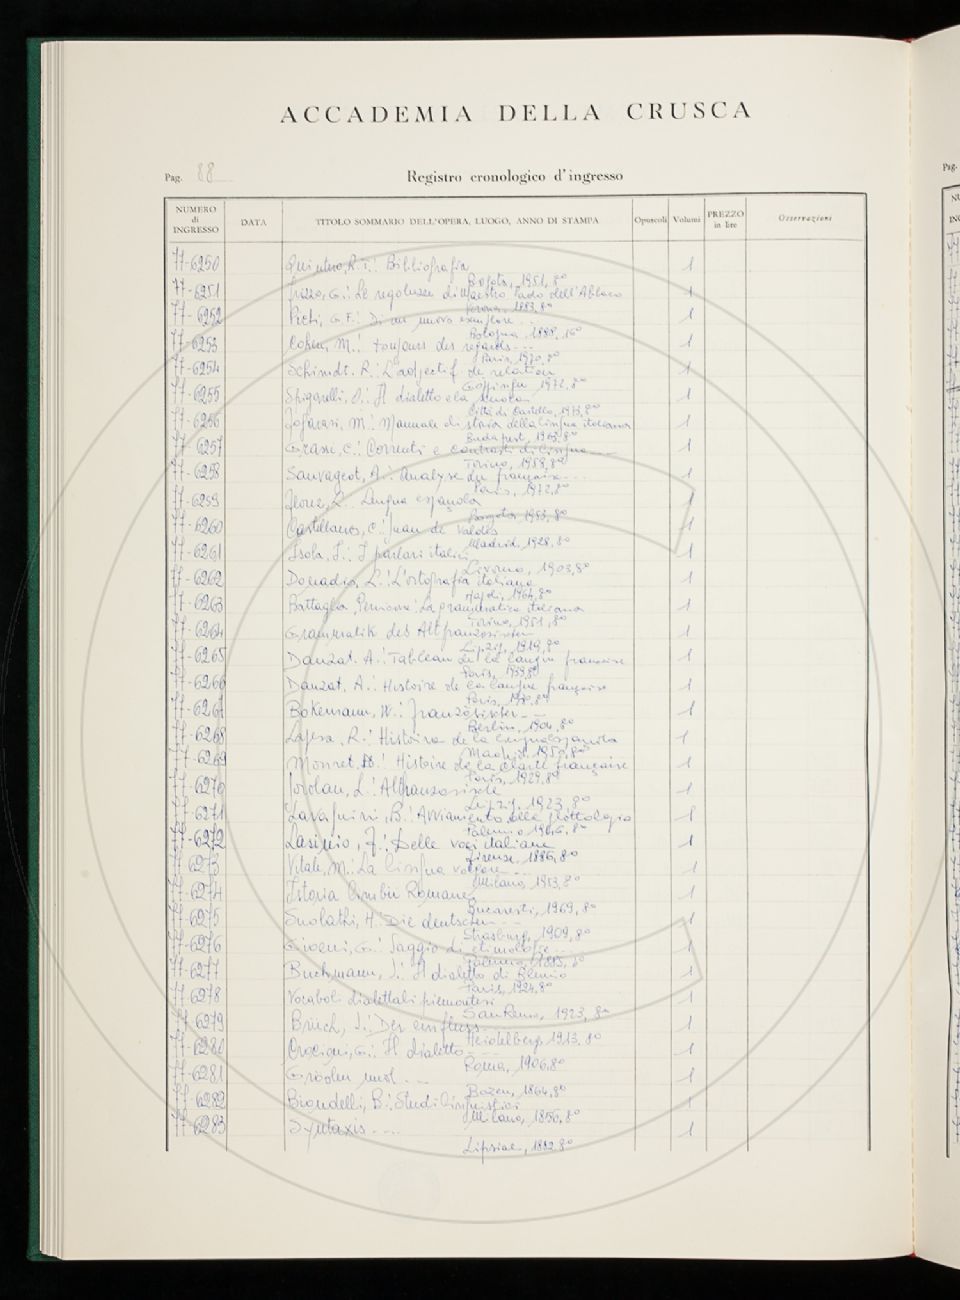 ACCADEMIA DELLA CRUSCA
Pag. 88
Registro cronologico d'ingresso
NUMERO di INGRESSO DATA TITOLO SOMMARIO DELL'OPERA, LUOGO, ANNO DI STAMPA Opuscoli Volumi PREZZO in lire Osservazioni
77-6250 Quintero, R. Bibliografia 1
Bogota, 1951, 8º
77-6251 Le regoluzze di Maestro Paolo dell'Abbaco 1
Verona, 1883, 8º
77-6252 G.F.: Di un nuovo 1
Bologna, 1888, 16º
77-6253 Cohen, M.: toujours des regards --- 1
Paris, 1970, 8º
77-6254 Schimdt. R.: L'adjectif de relation 1
1972, 8º
77-6255 Il dialetto e la scuola 1
Città di Castello, 1973, 8º
77-6256 M. Manuale di storia della lingua italiana 1
Budapest, 1963, 8º
77-6257 Grassi, C.: Correnti e contrasti di lingua --- 1
Torino, 1958, 8º
77-6258 Sauvageot, A.: Analyse du français --- 1
Paris, 1972, 8º
77-6259 Lengua española 1
Bogota, 1953, 8º
77-6260 Castellanos, C.: Juan de Valdés 1
Madrid, 1928, 8º
77-6261 Isola, I.: I parlari italici 1
Livorno, 1903, 8º
77-6262 Donadio, L.: L'ortografia italiana 1
1964, 8º
77-6263 Battaglia, Pernicone: La grammatica italiana 1
Torino, 1951, 8º
77-6264 Grammatik des Altfranzösischen 1
Lipzig, 1919, 8º
77-6265 Danzat. A.: Tableau de la langue française 1
Paris, 1939, 8º
77-6266 Danzat, A.: Histoire de la langue française 1
Paris, 8º
77-6267 W.: Französischer --- 1
Berlin, 1904, 8º
77-6268 Lapesa, R.: Historia de la lengua española 1
Madrid, 1950, 8º
77-6269 Mornet, D.: Histoire de la clarté française 1
Paris, 1929, 8º
77-6270 Jordan, L.: Altfranzösische 1
Leipzig, 1923, 8º
77-6271 Lavagnini, B.: Avviamento alla glottologia 1
Palermo, 8º
77-6272 Lasinio, F.: Delle voci italiane 1
Firenze, 1886, 8º
77-6273 Vitale, M.: La lingua volgare --- 1
Milano, 1953, 8º
77-6274 Istoria limbii Romane 1
Bucaresti, 1969, 8º
77-6275 H. Die deutschen --- 1
Strasburg, 1909, 8º
77-6276 Gioeni, G.: Saggio di etimologie --- 1
Palermo, 1885, 8º
77-6277 Buchmann, J.: Il dialetto di Blenio 1
Paris, 1924, 8º
77-6278 Vocaboli dialettali piemontesi 1
San Remo, 1923, 8º
77-6279 Brüch, J.: Der einfluss --- 1
Heidelberg, 1913, 8º
77-6280 Crocioni, G.: Il dialetto --- 1
Roma, 1906, 8º
77-6281 Gröden und --- 1
Bozen, 1864, 8º
77-6282 Biondelli, B.: Studi linguistici 1
Milano, 1856, 8º
77-6283 Syntaxis --- 1
Lipsiae, 1882, 8º